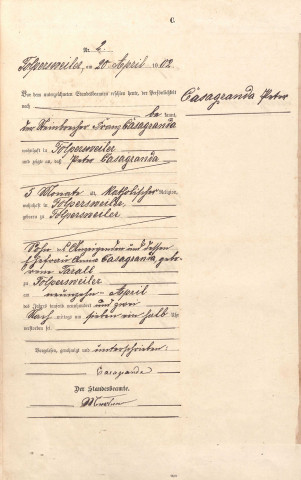 C.
Nr. 2.
Folpersweiler, am 20 April 1902
Casagranda Peter
Vor dem unterzeichneten Standesbeamten erschien heute, der Persönlichkeit
nach bekannt,
der Steinbrecher Franz Casagranda
wohnhaft in Folpersweiler
und zeigte an, daß Peter Casagranda
3 Monate alt, Katholischer Religion,
wohnhaft in Folpersweiler
geboren zu Folpersweiler
Sohn des Anzeigenden und dessen
Ehefrau Anna Casagranda gebo-
rene
zu Folpersweiler
am neunzehn April
des Jahres tausend neunhundert und zwei
Nachmittags um sieben ein halb Uhr
verstorben sei.
Vorgelesen, genehmigt und unterschrieben:
Casagranda
Der Standesbeamte.